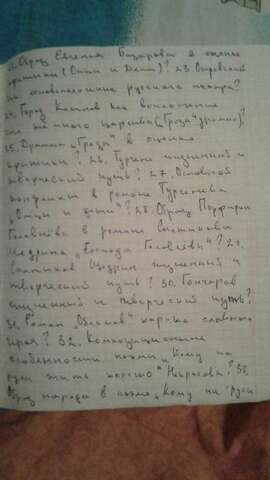 22. Образ Евгения Базарова в оценке
критики (Отцы и Дети)? 23. Островский
основоположник русского театра?
24. Город Калинов как воплощение
царства (Гроза)?
25. Драма "Гроза" в оценке
критики? 26. Тургенев жизненный и
творческий путь? 27. Основной
конфликт в романе Тургенева
"Отцы и дети"? 28. Образ Порфирия
Головлёва в романе Салтыкова
Щедрина "Господа Головлёвы"? 29.
Салтыков Щедрин жизненный и
творческий путь? 30. Гончаров
жизненный и творческий путь?
31. Роман "Обломов"
героя? 32. Композиционные
особенности поэмы "Кому на
Руси жить хорошо" Некрасова? 33.
Образ народа в поэме "Кому на Руси